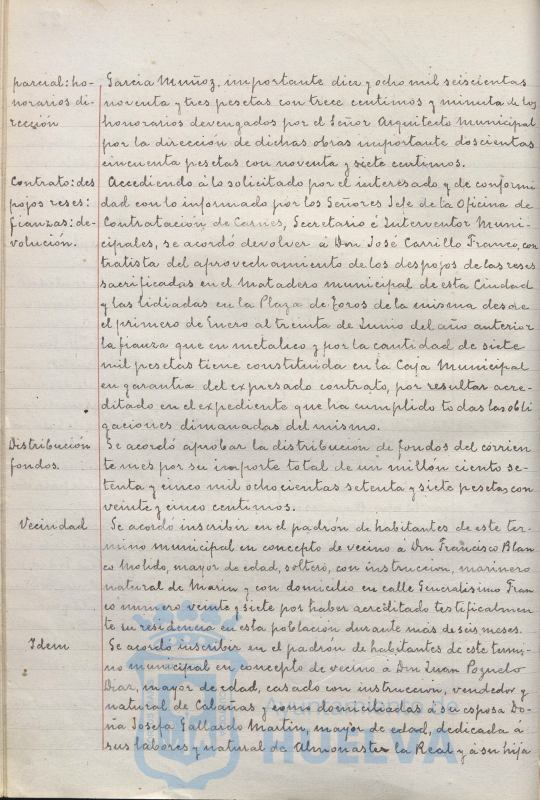 parcial: ho-
norarios di-
rección
Garcia Muñoz, importante diez y ocho mil seiscientas
noventa y tres pesetas con trece centimos y minuta de los
honorarios devengados por el Señor Arquitecto Municipal
por la dirección de dichas obras importante doscientas
cincuenta pesetas con noventa y siete centimos.
Contrato: des
pojos reses:
fianzas: de-
volución.
Accediendo á lo solicitado por el interesado y de conformi
dad con lo informado por los Señores Jefe de la Oficina de
Contratación de Carnes, Secretario é Interventor Muni-
cipales, se acordó devolver á Don José Carrillo Franco, con
tratista del aprovechamiento de los despojos de las reses
sacrificadas en el Matadero municipal de esta Ciudad
y las lidiadas en la Plaza de Toros de la misma desde
el primero de Enero al treinta de Junio del año anterior
la fianza que en metalico y por la cantidad de siete
mil pesetas tiene constituida en la Caja Municipal
en garantia del expresado contrato, por resultar acre-
ditado en el expediente que ha cumplido todas las obli
gaciones dimanadas del mismo.
Distribución
fondos.
Se acordó aprobar la distribución de fondos del corrien
te mes por su importe total de un millón ciento se-
tenta y cinco mil ochocientas setenta y siete pesetas con
veinte y cinco centimos.
Vecindad
Se acordó inscribir en el padrón de habitantes de este ter-
mino municipal en concepto de vecino á Don Francisco Blan
co Molido, mayor de edad, soltero, con instruccion, marinero
natural de Marin y con domicilio en calle Generalisimo Fran
co numero veinte y siete por haber acreditado testificalmen
te su residencia en esta población durante mas de seis meses.
Idem
Se acordó inscribir en el padrón de habitantes de este termi-
no municipal en concepto de vecino á Don Juan Pozuelo
Diaz, mayor de edad, casado con instruccion, vendedor y
natural de Calañas y como domiciliadas á su esposa Do-
ña Josefa Gallardo Martin, mayor de edad, dedicada á
sus labores y natural de Almonaster la Real y á su hija
HUELVA